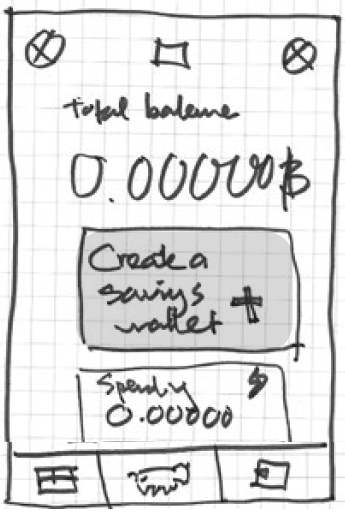 Total balance
0.00000₿
Create a
savings
wallet +
Spending
0.00000